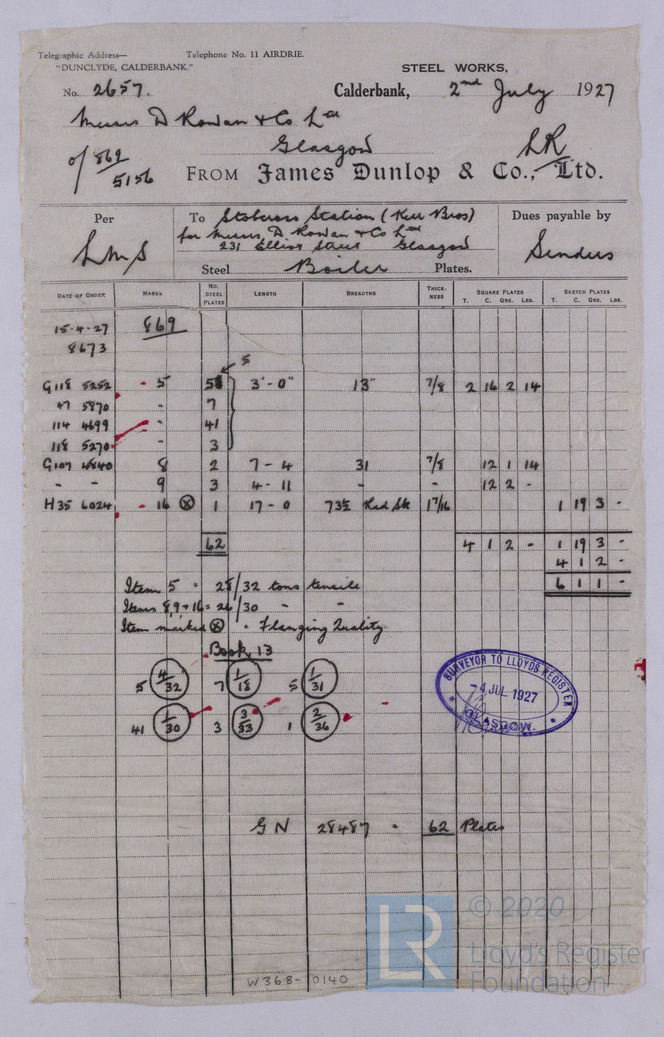 Telegraphic Address— Telephone No. 11 AIRDRIE.
"DUNCLYDE, CALDERBANK."
STEEL WORKS,
No. 2657. Calderbank, 2nd July 1927
Messrs D Rowan & Co Ltd
Glasgow
of 869/5156 LR
FROM James Dunlop & Co., Ltd.
Per To Stobcross Station (Kerr Bros) Dues payable by
LMS for Messrs, D. Rowan & Co Ltd Senders
231 Elliot Street Glasgow
Steel Boiler Plates.
DATE OF ORDER. MARKS NO. STEEL PLATES LENGTH BREADTHS THICKNESS SQUARE PLATES T. C. QRS. LBS. SKETCH PLATES T. C. QRS. LBS.
15-4-27 869
8673
5
G118 5252 - 5 5 3'-0" 13" 7/8 2 16 2 14
47 5870 - 7
114 4699 - 41
118 5270 - 3
G107 4840 8 2 7-4 31 7/8 12 1 14
- - 9 3 4-11 - - 12 2 -
H35 6024 - 16 ⊗ 1 17-0 73½ Rad Sk 1 7/16 1 19 3 -
62 4 1 2 - 1 19 3 -
4 1 2 -
6 1 1 -
Item 5 = 28/32 tons tensile
Items 8, 9 + 16 = 26/30 - -
Item marked ⊗ = Flanging Quality
Book 13
5 4/32 7 1/18 5 1/31
41 1/30 3 3/33 1 2/36
SURVEYOR TO LLOYDS REGISTER
4 JUL 1927
GLASGOW.
GN 28487 - 62 Plates
W368-0140
LR
© 2020
Lloyd's Register
Foundation